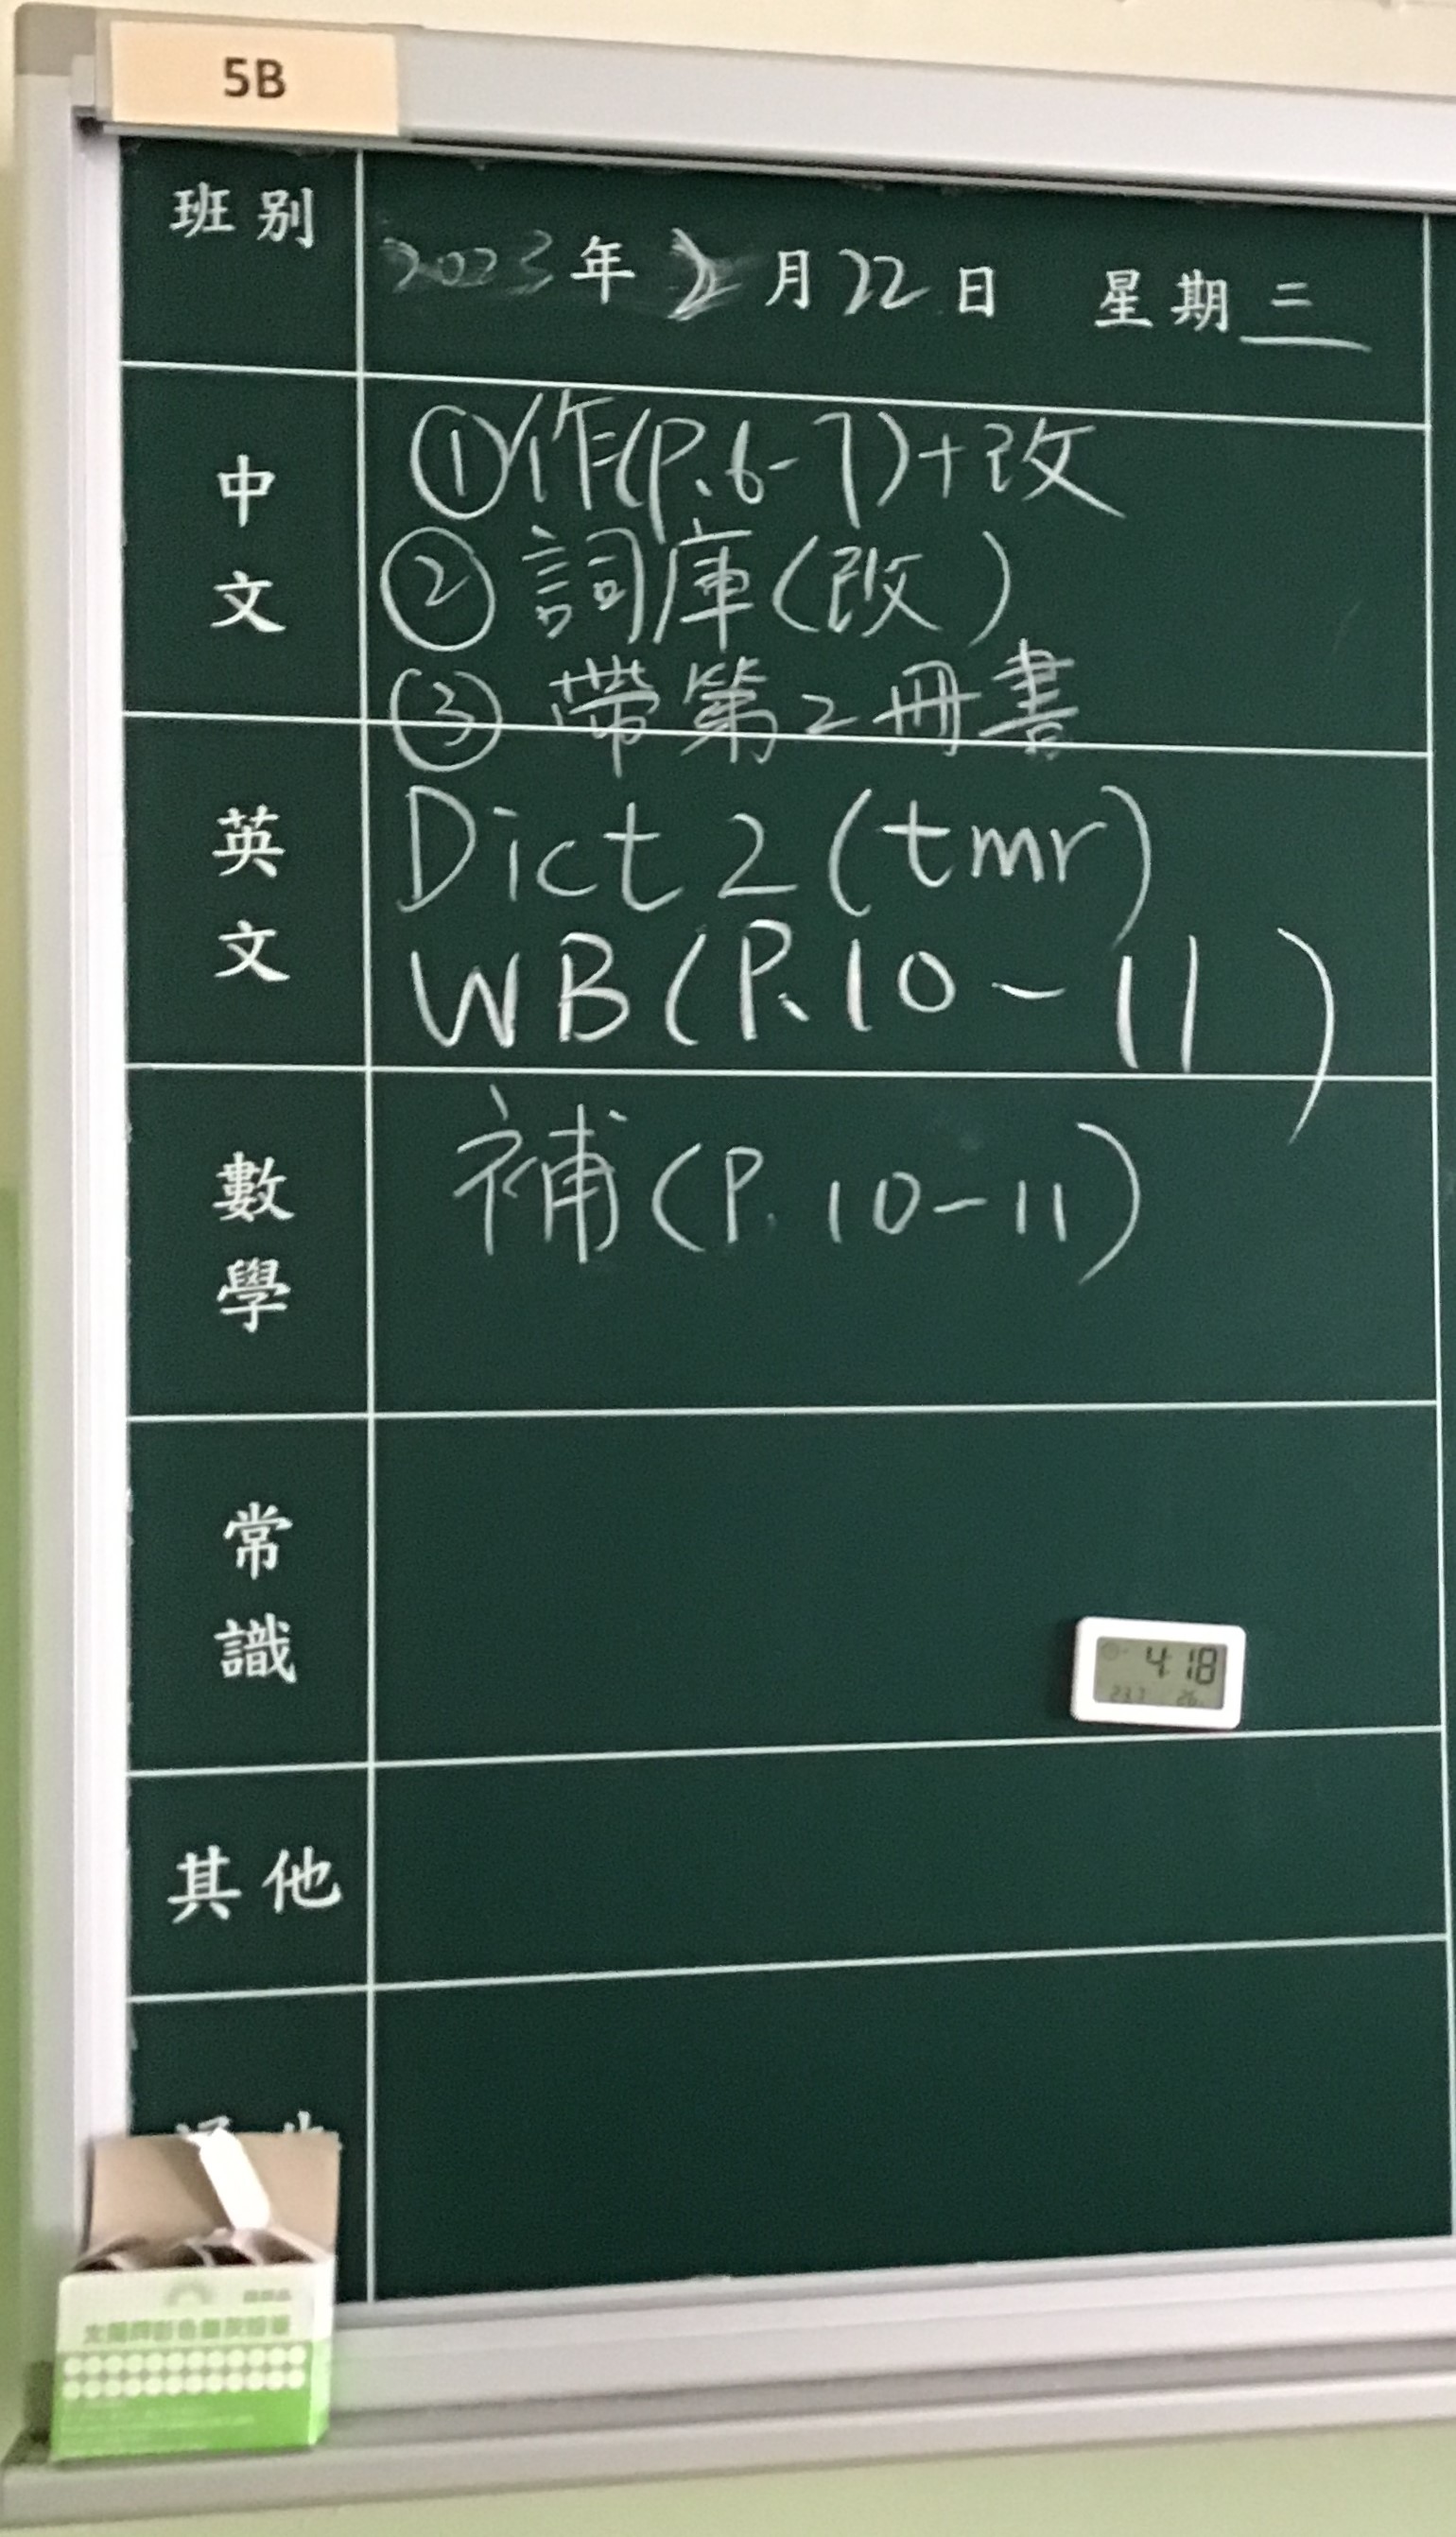 5B
班別
2023年2月22日 星期三
中文
①作(P.6-7)+改
②詞庫(改)
③帶第2冊書
英文
Dict 2 (tmr)
WB (P.10-11)
數學
補(P.10-11)
常識
4:18
其他